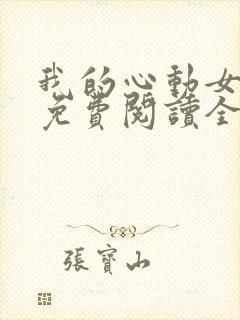 我的心動女
免費閱讀全
張寶山